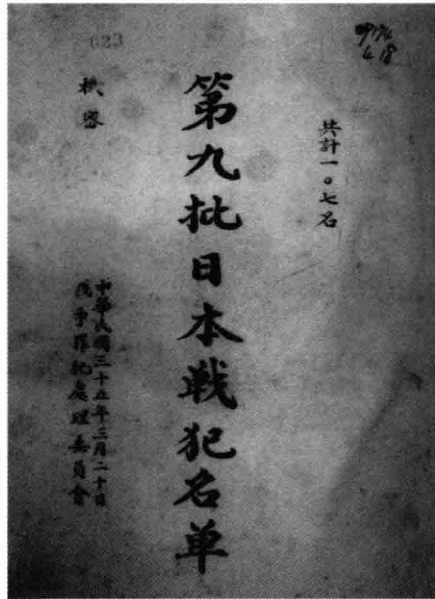 共計一〇七名
第九批日本戦犯名单
機密
中華民國三十五年三月二十日
戰争罪犯處理委員會